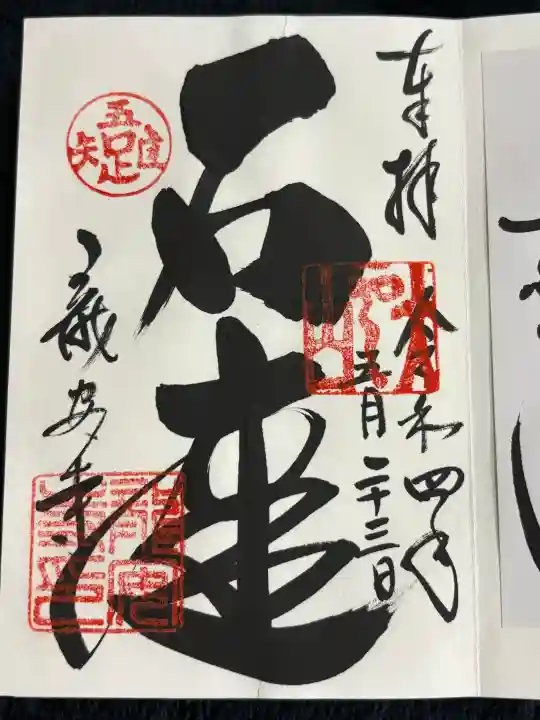 奉拝
令和四年
五月二十三日
石庭
吾唯足知
龍安寺